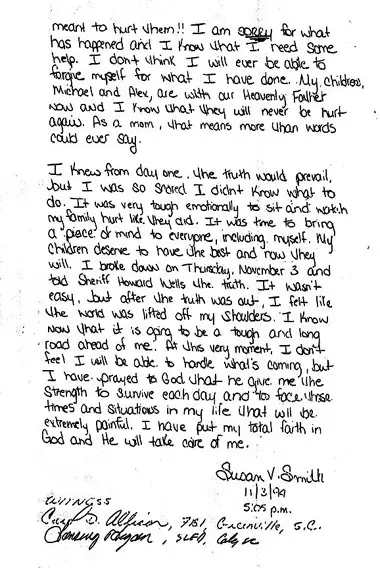 meant to hurt them!! I am sorry for what
has happened and I know that I need some
help. I don't think I will ever be able to
forgive myself for what I have done. My children,
Michael and Alex, are with our Heavenly Father
now and I know that they will never be hurt
again. As a mom, that means more than words
could ever say.
I knew from day one, the truth would prevail,
but I was so scared I didn't know what to
do. It was very tough emotionally to sit and watch
my family hurt like they did. It was time to bring
a piece of mind to everyone, including myself. My
children deserve to have the best and now they
will. I broke down on Thursday, November 3 and
told Sheriff Howard Wells the truth. It wasn't
easy, but after the truth was out, I felt like
the world was lifted off my shoulders. I know
now that it is going to be a tough and long
road ahead of me. At this very moment, I don't
feel I will be able to handle what's coming, but
I have prayed to God that he give me the
strength to survive each day and to face those
times and situations in my life that will be
extremely painful. I have put my total faith in
God and He will take care of me.
Susan V. Smith
11/3/94
5:05 p.m.
FBI, Greenville, S.C.
SLED,